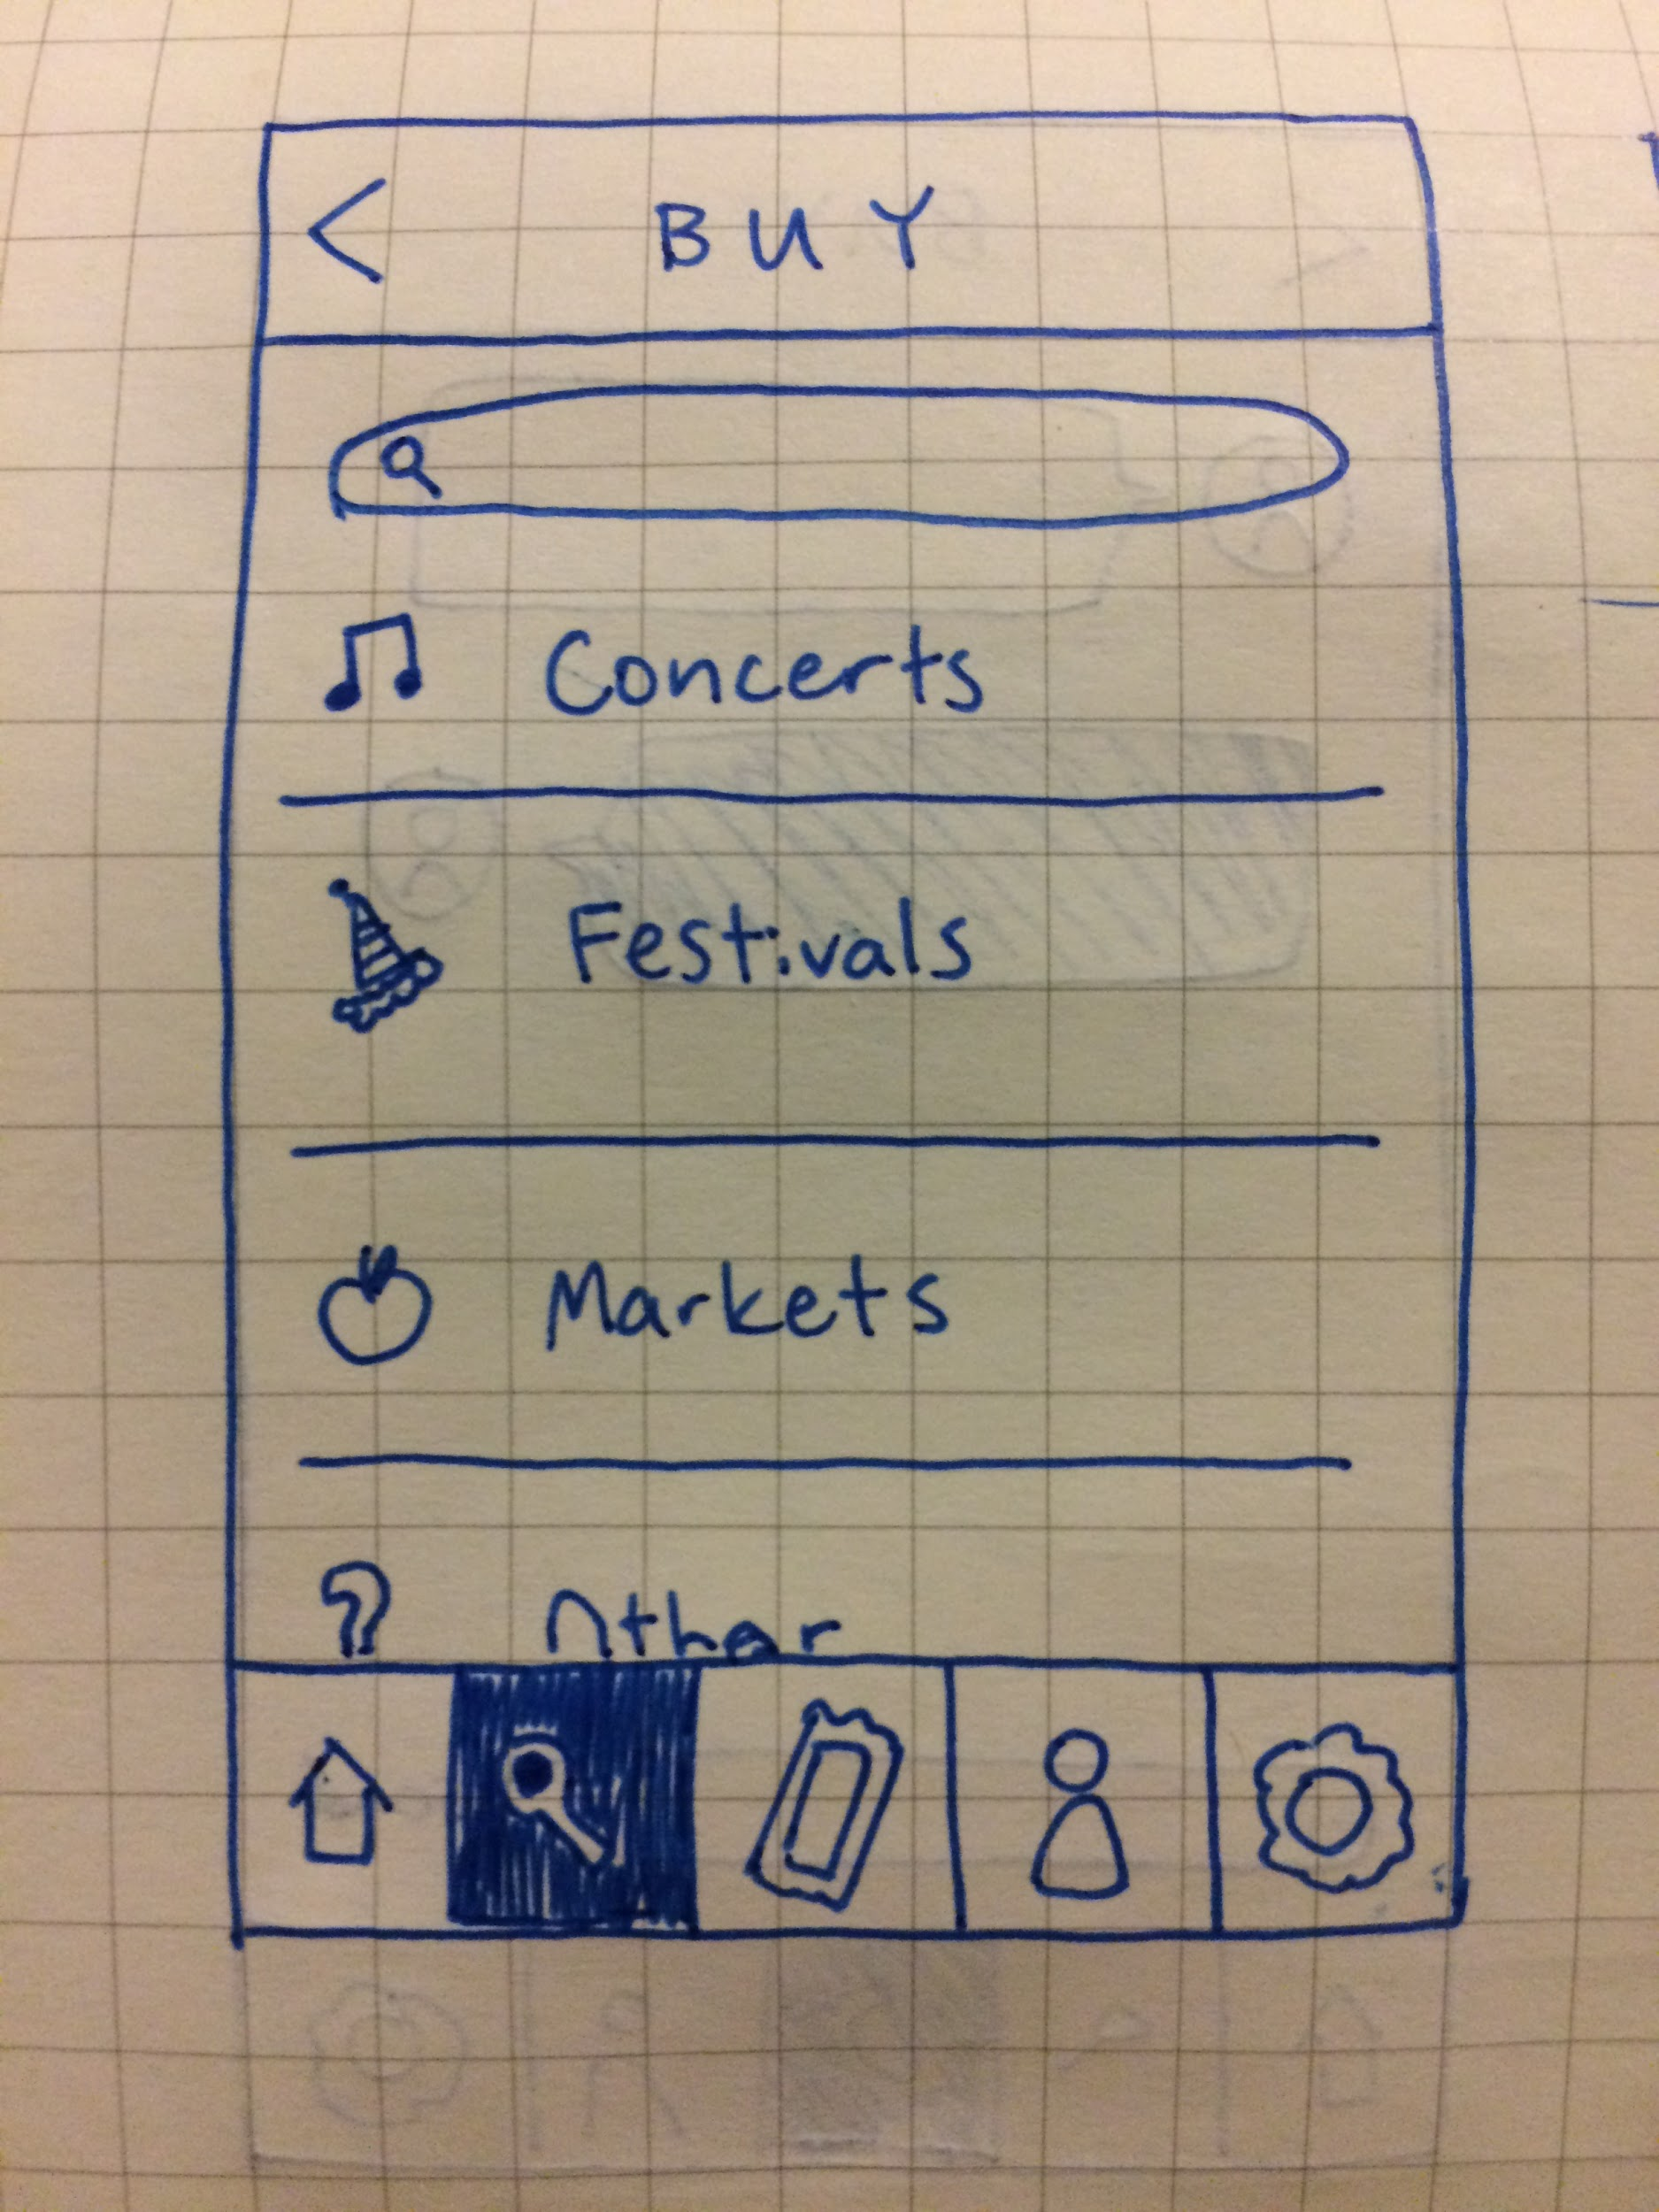 < BUY
Concerts
Festivals
Markets
? Other